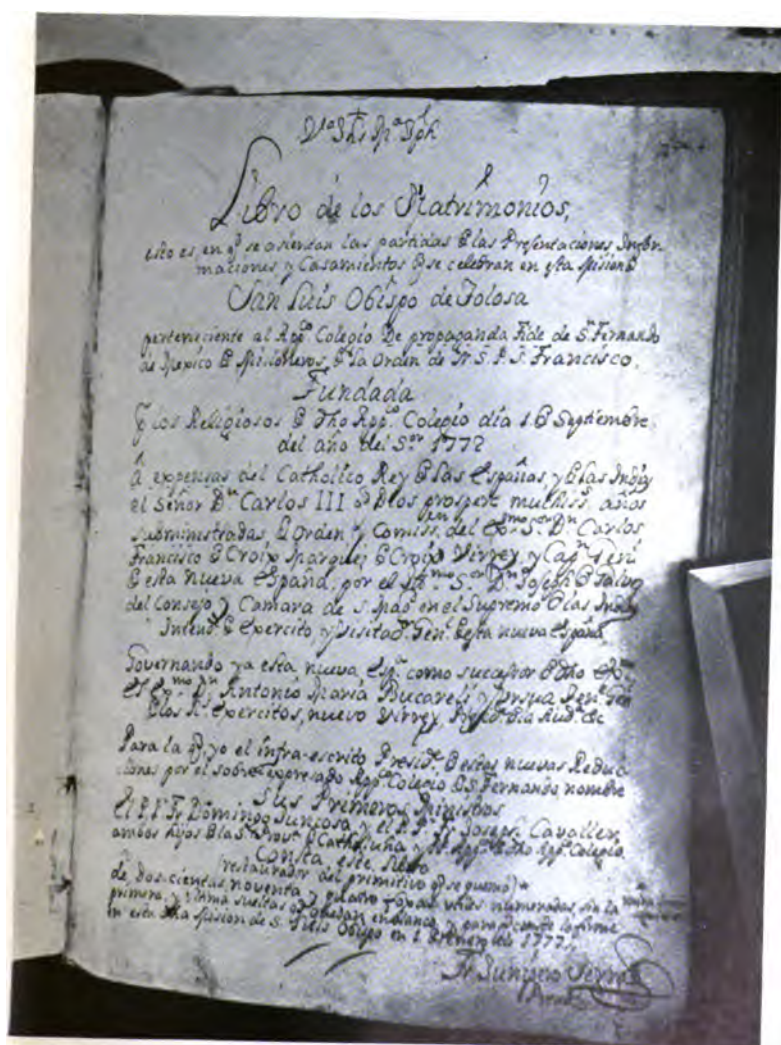 Libro de los Matrimonios,
esto es en q.e se asientan las partidas de las Presentaciones Infor-
maciones y Casamientos q.e se celebran en esta Mision de
San Luis Obispo de Tolosa
perteneciente al App.co Colegio De propaganda Fide de S.n Fernando
de Mexico de Misioneros de la Orden de N. S. P. S. Francisco,
Fundada
p.r los Religiosos de dho App.co Colegio dia 1 de Septiembre
del año del S.or 1772
â expensas del Catholico Rey de las Españas y de las Indi.s
el Señor D.n Carlos III q.e Dios prospere muchiss.s años
subministradas, de Orden y Comiss.on del Ex.mo S.or D.n Carlos
Francisco de Croix Marques de Croix, Virrey, y Cap.n Gen.l
de esta nueva España, por el Ill.mo S.or D.n Joseph de Galvez
del Consejo y Camara de S. Mag.d en el Supremo de las Indi.s
Intend.te de Exercito y Visitad.r Gen.l de esta nueva España,
Governando ya esta nueva Esp.a como successor de dho Ex.mo
el Ex.mo D.n Antonio Maria Bucareli y Ursua Ten.te Gen.l
de los R.s Exercitos, nuevo Virrey, Presid.te de la Aud.a &c
Para la q.e yo el infra-escrito Presid.te de estas nuevas Reduc-
ciones por el sobre expresado App.co Colegio de S. Fernando nombré
Sus Primeros Ministros
El P. F. Fr. Domingo Juncosa, y el P. F. Fr. Joseph Cavaller,
ambos hijos de la S.ta Prov.a de Cathaluña y de dho App.co Colegio.
Consta este Libro
(restaurador del primitivo q.e se quemó)
de doscientas, noventa y quatro foxas utiles numeradas, sin la
primera, y ultima sueltas q.e quedan en blanco, y para q.e conste lo firmé
en esta dha Mision de S. Luis Obispo en 1 de Enero de 177
Fr. Junipero Serra
Presid.te